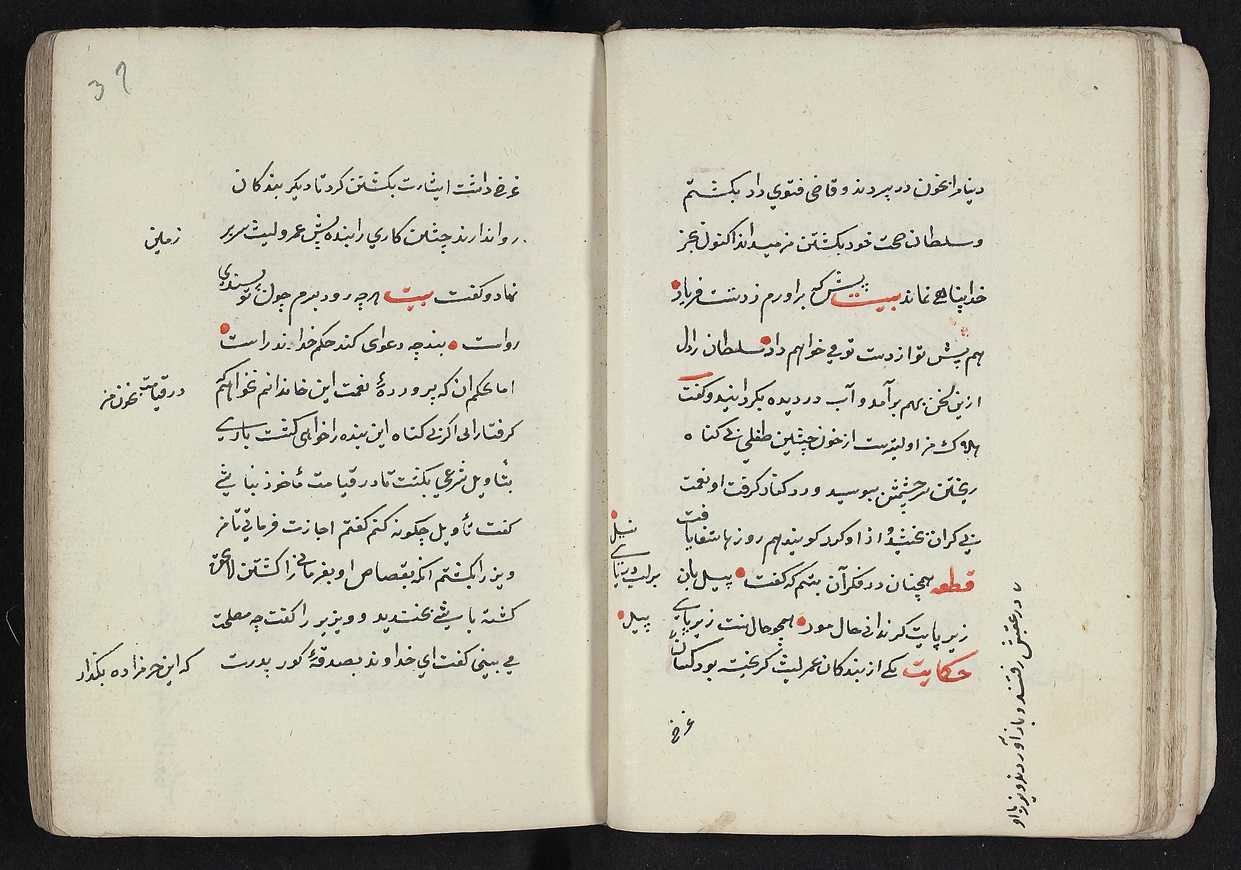 دنیا مرا بخون در سپردند و قاضی فتوی داد بکشتم
و سلطان صحت خود بکشتن من میداند اکنون بجز
خدا پناهی نماند بیت پیش که براورم ز دستت فریاد
هم پیش تو از دست تو می خواهم داد سلطان را دل
ازین سخن بهم برآمد و آب در دیده بکردانید و کفت
هلاک من اولیترست از خون چنین طفلی بی کناه
ریختن سر چشمش ببوسید و در کنار کرفت و نعمت
بی کران بخشید و آزاد کرد کویند هم در ان روزها شفا یافت
قطعه همچنان در فکر آن بیتم که کفت پیل بان
بر لب دریای نیل
زیر پایت کر ندانی حال مور همچو حال تست زیر پای
پیل
حکایت یکی از بندکان عمر لیث کریخته بود کسان
در عقبش رفتند و باز آوردند وزیر با او
غرض
37
غرضی داشت اشارت بکشتن کرد تا دیکر بندکان
روا ندارند چنین کاری را بنده پیش عمرو لیث سر بر
زمین
نهاد و کفت بیت هرچه رود بر سرم چون تو پسندی
رواست بنده چه دعوی کند حکم خداوند راست
اما بحکم ان که پرورده نعمت این خاندانم نخواهم که
در قیامت بخون من
کرفتار ائی اکر بی کناه این بنده را خواهی کشت باری
بتأویل شرعی بکش تا در قیامت مأخوذ نباشی
کفت تأویل چکونه کنم کفتم اجازت فرمائی تا من
وزیر را بکشم انکه بقصاص او بفرمائی را کشتن تا بحق
کشته باشی بخندید و وزیر را کفت چه مصلحت
می بینی کفت ای خداوند بصدقه کور پدرت
که این حرمزاده بکذار